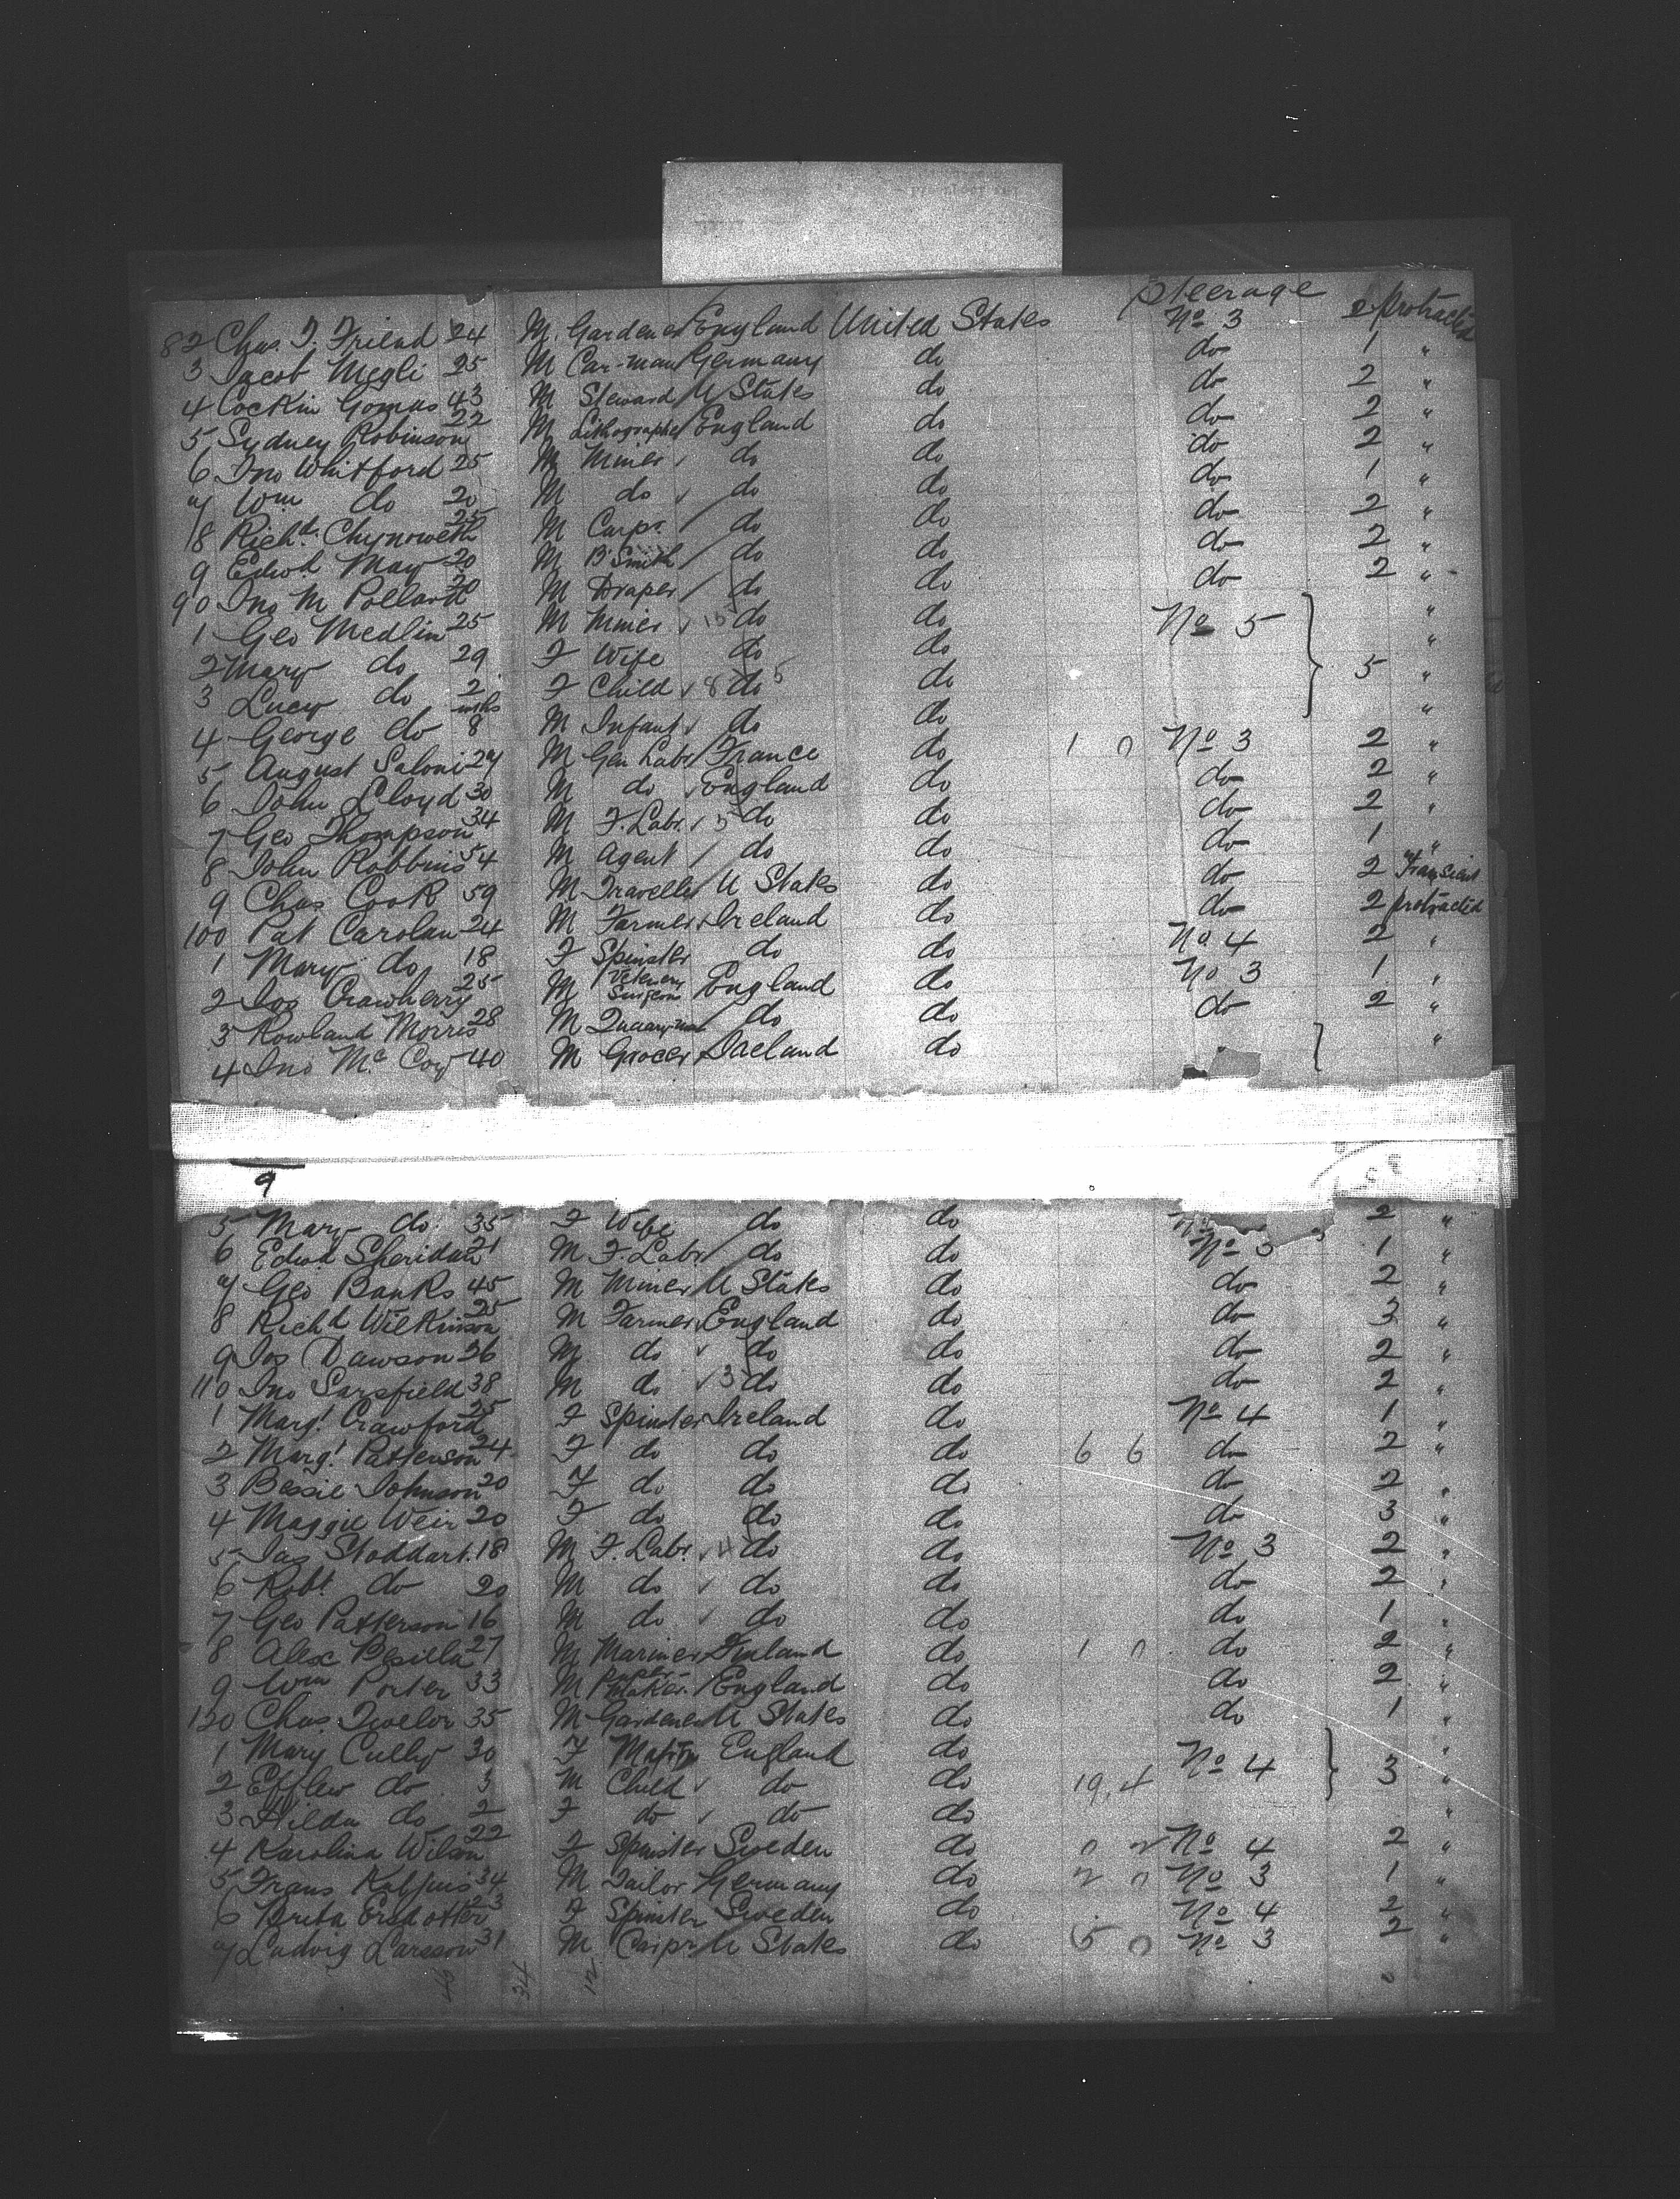 Steerage
82 Chas. T. Friend 24 M. Gardener England United States No 3 2 protracted
3 Jacob Megli 25 M Car-man Germany do do 1 "
4 Cockin Gomas 43 M Steward U States do do 2 "
5 Sydney Robinson 22 M Lithographer England do do 2 "
6 Jno Whitford 25 M Miner do do do 2 "
7 Wm do 20 M do do do do 1 "
8 Richd. Chynoweth 25 M Carpr. do do do 2 "
9 Edwd. May 20 M B'Smith do do do 2 "
90 Jno M Pollard 20 M Draper do do do 2 "
1 Geo Medlin 25 M Miner 15 do do No 5 "
2 Mary do 29 F Wife do do "
3 Lucy do 2 F Child 8 do 5 do 5 "
4 George do 8 wks M Infant do do "
5 August Saloni 27 M Gen Labr France do 1 0 No 3 2 "
6 John Lloyd 30 M do England do do 2 "
7 Geo Thompson 34 M F. Labr. 5 do do do 2 "
8 John Robbins 54 M Agent do do do 1 "
9 Chas Cook 59 M Traveller U States do do 2 Transient
100 Pat Carolan 24 M Farmer Ireland do do 2 protracted
1 Mary do 18 F Spinster do do No 4 2 "
2 Jos Crawherry 25 M Veterery Surgeon England do No 3 1 "
3 Rowland Morris 28 M Quarryman do do do 2 "
4 Jno Mc Coy 40 M Grocer Ireland do "
9
5 Mary do. 35 F Wife do do No 2 "
6 Edwd. Sheridan 21 M F. Labr do do No 3 1 "
7 Geo Banks 45 M Miner U States do do 2 "
8 Richd Wilkinson 25 M Farmer England do do 3 "
9 Jos Dawson 36 M do do do do 2 "
110 Jno Sarsfield 38 M do 3 do do do 2 "
1 Margt. Crawford 25 F Spinster Ireland do No 4 1 "
2 Margt. Patterson 24 F do do do 6 6 do 2 "
3 Bessie Johnson 20 F do do do do 2 "
4 Maggie Weir 20 F do do do do 3 "
5 Jas Stoddart. 18 M F. Labr. 4 do do No 3 2 "
6 Robt do 20 M do do do do 2 "
7 Geo Patterson 16 M do do do do 1 "
8 Alex Besilla 27 M Mariner Finland do 1 0 do 2 "
9 Wm Porter 33 M Paper maker. England do do 2 "
120 Chas. Twelor 35 M Gardener U States do do 1 "
1 Mary Cully 30 F Matron England do No 4 "
2 Efflew do 3 M Child do do 19.4 3 "
3 Hilda do 2 F do do do "
4 Karolina Wilson 22 F Spinster Sweden do 0 2 No 4 2 "
5 Frans Kabjuis 34 M Tailor Germany do 2 0 No 3 1 "
6 Brita Ersdotter 23 F Spinster Sweden do No 4 2 "
7 Ludvig Larsson 31 M Carpr U States do 5 0 No 3 2 "
34 12